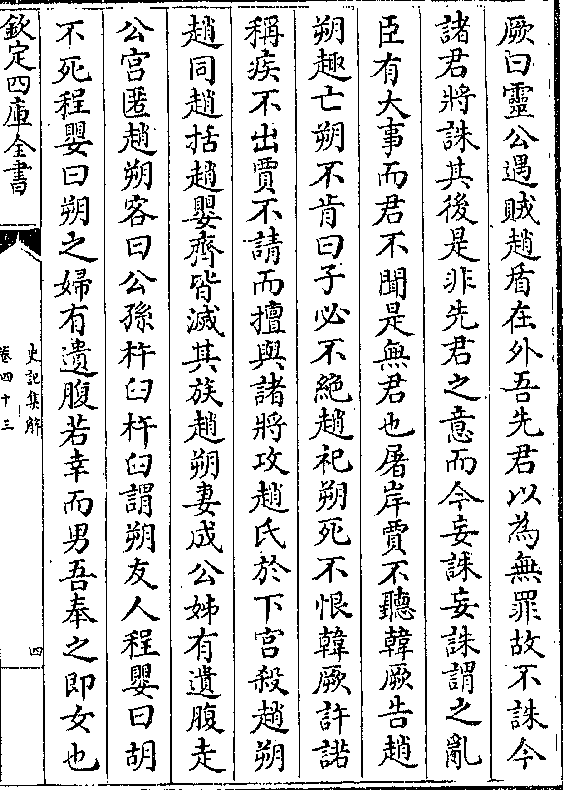 厥曰靈公遇賊趙盾在外吾先君以為無罪故不誅今
諸君將誅其後是非先君之意而今妄誅妄誅謂之亂
臣有大事而君不聞是無君也屠岸賈不聽韓厥告趙
朔趣亡朔不肯曰子必不絶趙祀朔死不恨韓厥許諾
稱疾不出賈不請而擅與諸將攻趙氏於下宮殺趙朔
趙同趙括趙嬰齊皆滅其族趙朔妻成公姊有遺腹走
公宮匿趙朔客曰公孫杵臼杵臼謂朔友人程嬰曰胡
不死程嬰曰朔之婦有遺腹若幸而男吾奉之即女也
欽定四庫全書
史記集解
卷四十三
四